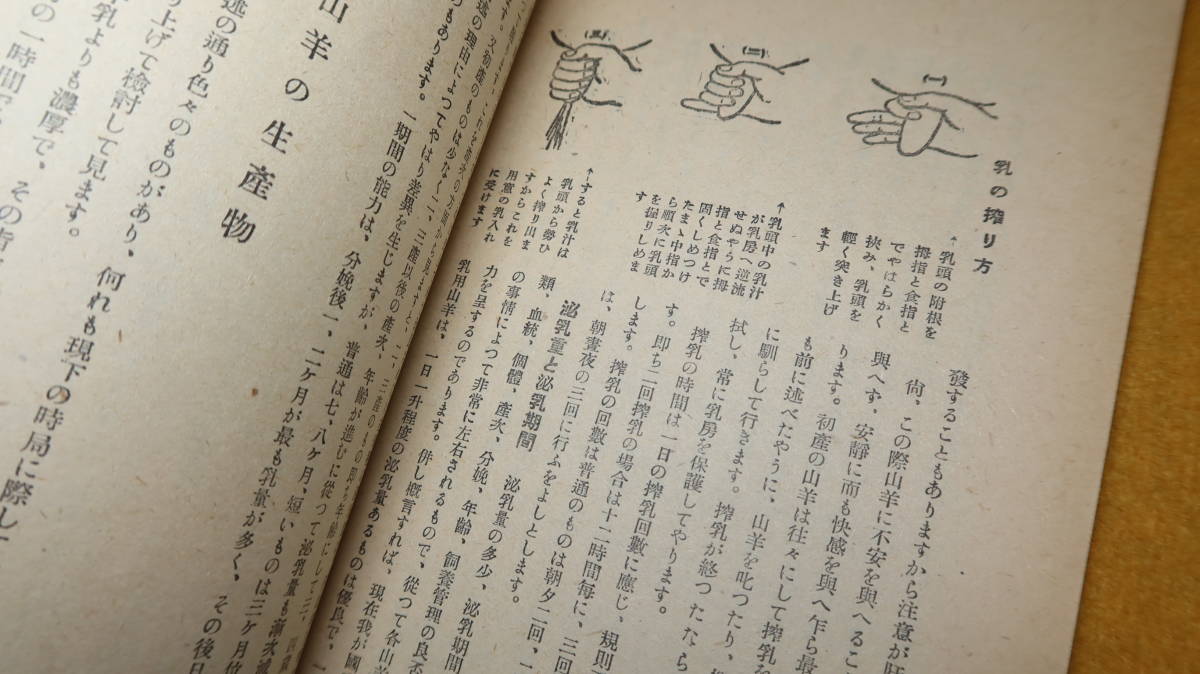 乳の搾り方
(一)
(二)
(三)
↑乳頭の附根を
拇指と食指と
でやはらかく
挾み、乳頭を
輕く突き上げ
ます
↑乳頭中の乳汁
が乳房へ逆流
せぬやうに拇
指と食指とで
固くしめつけ
たまゝ中指か
ら順次に乳頭
を握りしめま
す
↑すると乳汁は
乳頭から勢ひ
よく搾り出ま
すからこれを
用意の乳入れ
に受けます
發することもありますから注意が肝
尙、この際山羊に不安を與へるこ
與へず、安靜に而も快感を與へ乍ら最
ります。初產の山羊は往々にして搾乳を
も前に述べたやうに、山羊を叱つたり、
に馴らして行きます。搾乳が終つたなら
拭し、常に乳房を保護してやります。
搾乳の時間は一日の搾乳回數に應じ、規則
す。卽ち二回搾乳の場合は十二時間每に、三回
します。搾乳の回數は普通のものは朝夕二回、一
は、朝晝夜の三回に行ふをよしとします。
泌乳量と泌乳期間 泌乳量の多少、泌乳期間
類、血統、個體、產次、分娩、年齡、飼養管理の良否
の事情によつて非常に左右されるもので、從つて各山羊
力を呈するのであります。併し槪言すれば、現在我が國
乳用山羊は、一日一升程度の泌乳量あるものは優良で、一
のもあります。一期間の能力は、分娩後一、二ケ月が最も乳量が多く、その後日
述の理由によつてやはり差異を生じますが、普通は七、八ケ月、短いものは三ケ月
山羊の生產物
述の通り色々のものがあり、何れも現下の時局に際し
り上げて檢討して見ます。
乳よりも濃厚で、その
の一時間